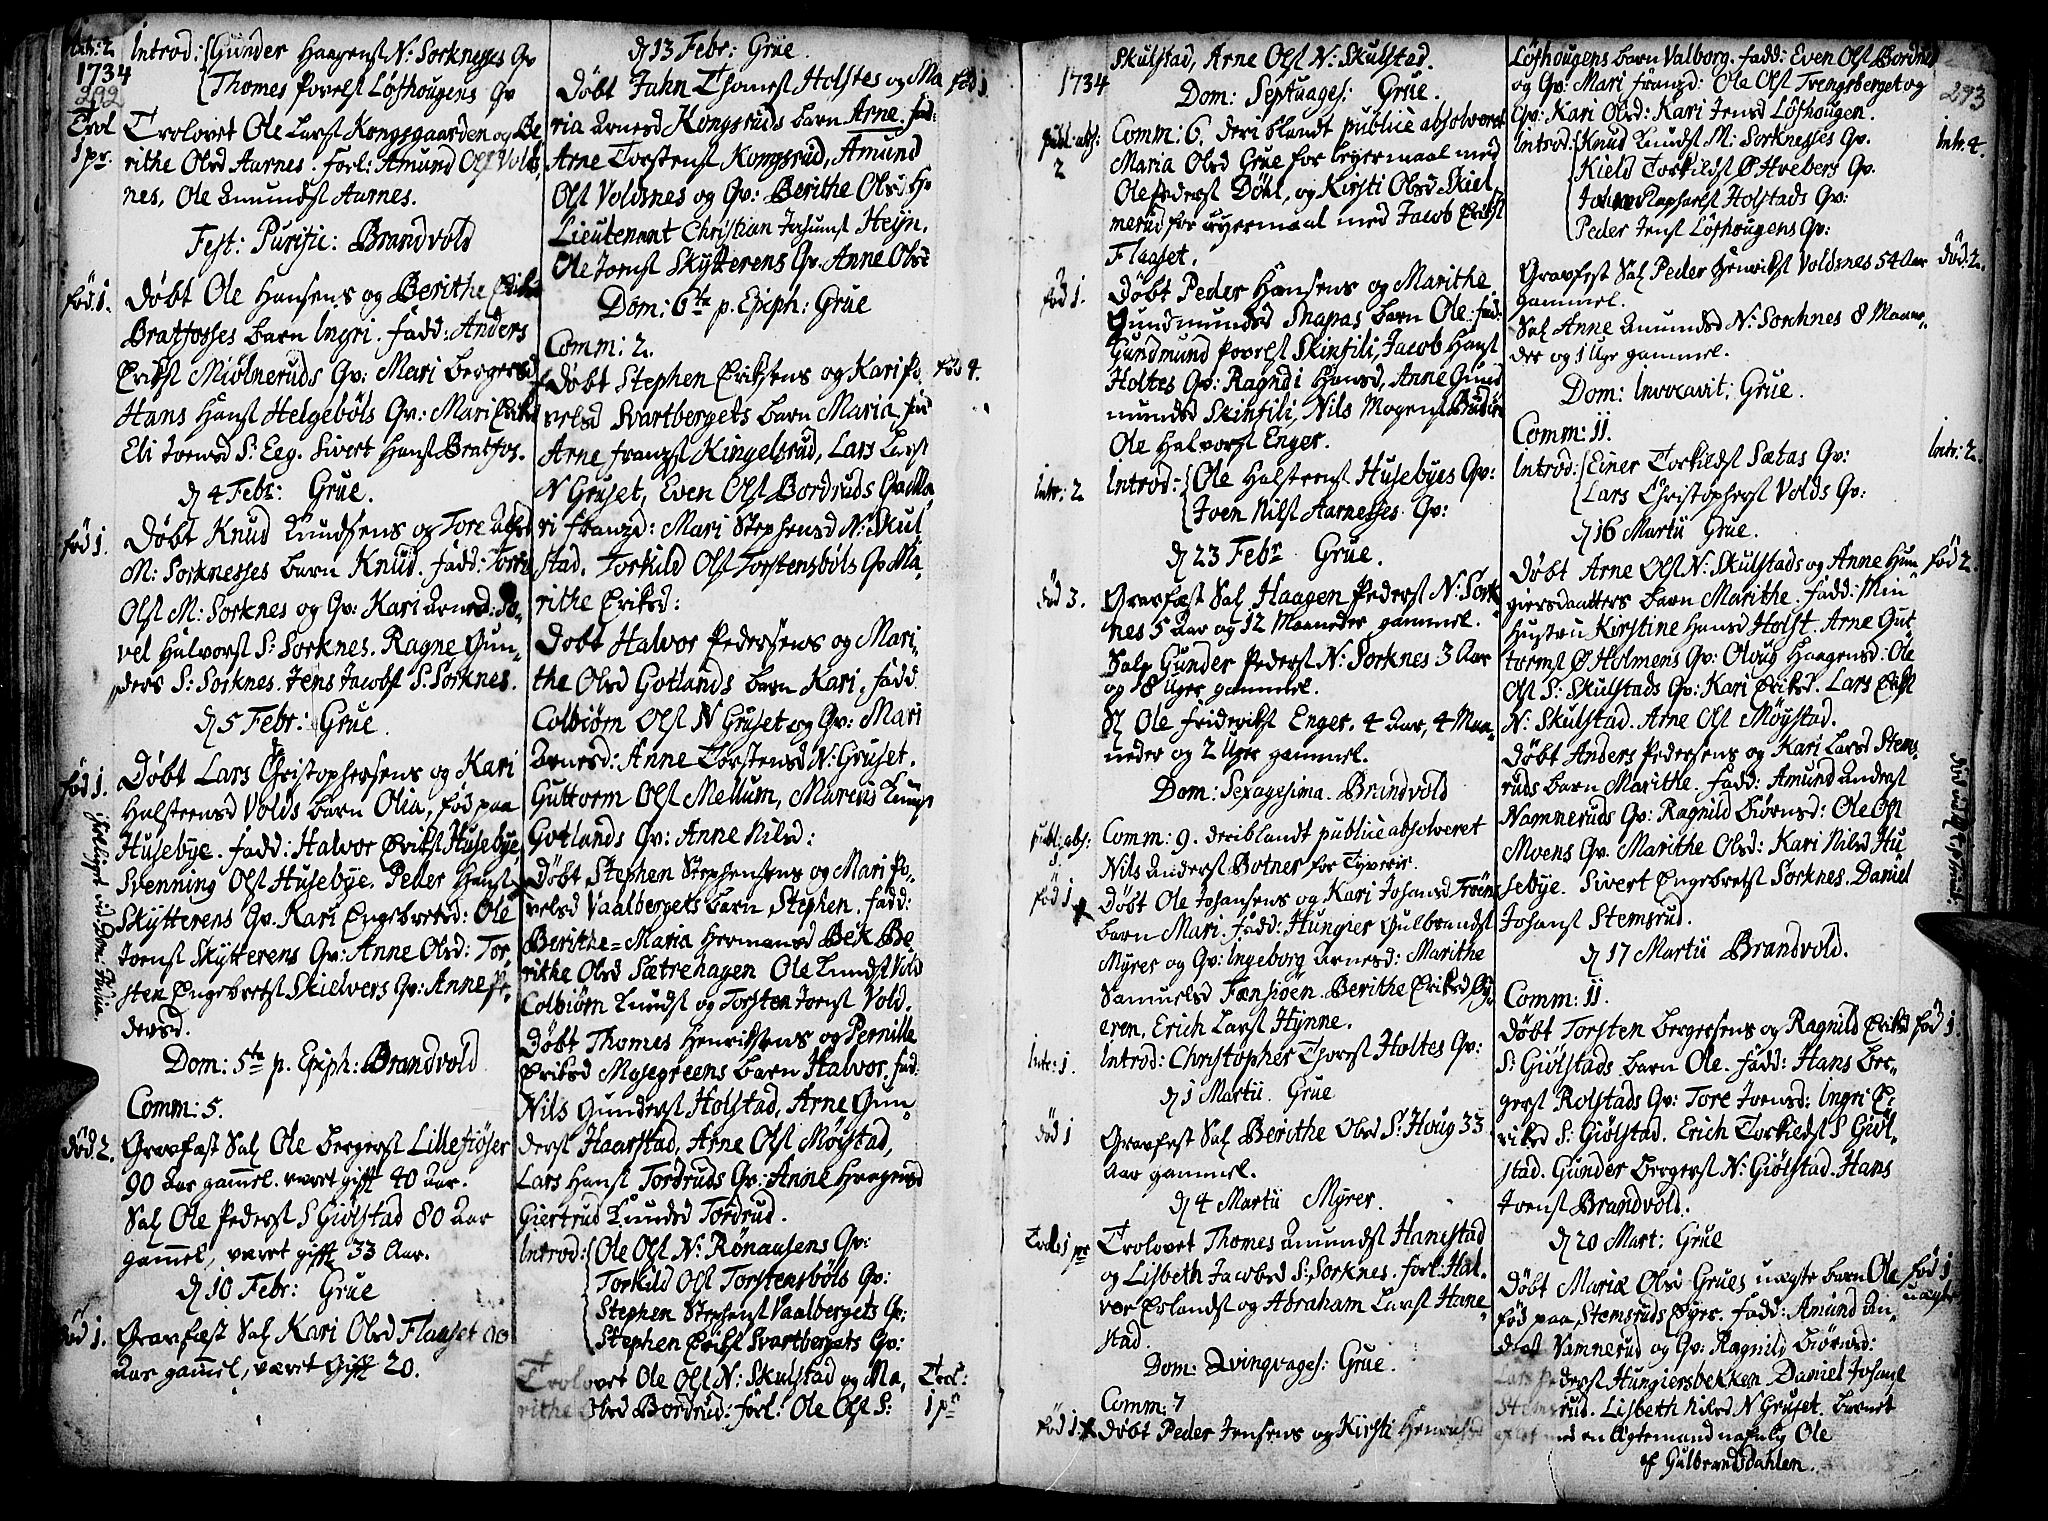 Intr: 2
1734
292
Introd: Gunder Haagens: N: Sorknesses Qv
Thomes Povels: Løfhougens Qv
Trol
1 pr.
Trolovet Ole Lars: Kongsgaarden og Be
rithe Olsd Aarnes. forl: Amund Ols: Volds
nes, Ole Amunds: Aarnes.
Fest: Purific: Brandvold
fød 1.
Døbt Ole Hansens og Berithe Eriksd
Bratfosses barn Ingri. fadd: Anders
Eriks: Miølneruds Qv: Mari Bergersd
Hans Hans: Helgebøls Qv: Mari Eriksd
Eli Joensd S: Eeg. Sivert Hans: Bratfos.
d 4 Febr: Grue.
fød 1.
Døbt Knud Knudsens og Tore
M: Sorknesses barn Knud. fadd:
Ols: M: Sorknes og Qv: Kari Arnesd: Po-
vel Halvors: S: Sorknes. Ragne Gun-
ders S: Sorknes. Jens Jacobs: S: Sorknes.
d 5 Febr: Grue.
fød 1.
Døbt Lars Christophersens og Kari
Halsteensd Volds barn Olia, fød paa
Husebye. fadd: Halvor Eriks: Husebye,
Svenning Ols: Husebye. Peder Hans:
Skytterens Qv. Kari Engebretsd: Ole
Joens: Skytterens Qv: Anne Olsd: Tor-
sten Engebrets: Skielvers Qv: Anne Pe-
dersd.
Dom: 5ta p. Epiph: Brandvold
Comm: 5.
død 2.
Gravfæst Sal Ole Bergers: Lillefiøser
90 Aar gammel. været gifft 40 Aar.
Sal Ole Peders: S Giølstad 80 Aar
gammel, været gifft 33 Aar.
d 10 Febr: Grue
død 1.
Gravfæst Sal Kari Olsd Flaaset 60
Aar gammel, været Gifft 20.
d 13 Febr: Grue.
fød 1
Døbt Jahn Thomes: Holstes og Ma
ria Arnesd Kongsruds barn Arne. fad:
Arne Torstens: Kongsrud, Amund
Ols: Voldsnes og Qv: Berithe Olsd Hr
Lieutenant Christian Jochums: Heyn,
Ole Joens: Skytterens Qv. Anne Olsd
Dom: 6ta p. Epiph: Grue
Comm: 2.
fød 4.
Døbt Stephen Eriksens og Kari Po
velsd Svartbergets barn Maria, fad
Arne franzs: Kingelsrud, Lars Lars:
N Gruset, Even Ols: Bordruds Qv. Ma
ri franzd: Mari Stephensd N: Skul
stad. Torkild Ols: Torstensbøls Qv Ma,
rithe Eriksd:
Døbt Halvor Pedersens og Mari-
the Olsd Gotlands barn Kari, fadd
Colbiørn Ols: N Gruset og Qv: Mari
Arnesd: Anne Torstensd N: Gruset.
Guttorm Ols: Mellum, Marcus Knuds:
Gotlands Qv: Anne Nilsd:
Døbt Stephen Stephensens og Mari Po-
velsd Vaalbergets barn Stephen. fadd:
Berithe=Maria Hermansd Bek Be
rithe Olsd Sætrehagen Ole Knuds: Vold
Colbiørn Knuds: og Torsten Joens: Vold.
Døbt Thomes Henriksens og Pernille
Eriksd Mysegreens barn Halvor. fad.
Nils Gunders: Holstad, Arne Gun-
ders: Haarstad, Arne Ols: Møystad,
Lars Hans: Tordruds Qv: Anne Haagensd
Giertrud Knudsd Tordrud.
Introd: Ole Ols: N: Rønaasens Qv:
Torkild Ols: Torstensbøls Qv:
Stephen Stephens: Vaalbergets Qv:
Stephen Eriks: Svartbergets Qv:
Trol:
1 pr
Trolovet Ole Ols: N: Skulstad og Ma,
rithe Olsd Bordrud: forl: Ole Ols: S:
1734
Skulstad, Arne Ols: N: Skulstad.
Dom: Septuages: Grue.
publ: abs:
2
Comm: 6. deriblandt publice absolveret
Maria Olsd Grue for Leyermaal med
Ole Peders: Døhl, og Kirsti Olsd Skiel
merud for Leyermaal med Jacob Eriks:
Flaaset.
fød 1.
Døbt Peder Hansens og Marithe
Gundmundsd Snapas barn Ole. fad:
Gundmund Povels: Skinfili, Jacob Hans:
Holtes Qv: Ragndi Hansd, Anne Gund
mundsd Skinfili, Nils Mogens:
Ole Halvors: Enger.
Intr: 2
Introd: Ole Halsteens: Husebyes Qv:
Joen Nils: Aarnesses Qv:
d 23 Febr Grue.
død 3.
Gravfæst Sal Haagen Peders: N: Sork
nes 5 Aar og 12 Maaneder gammel.
Salg Gunder Peders: N: Sorknes 3 Aar
og 8 Uger gammel.
Sl Ole Frideriks: Enger. 4 Aar, 4 Maa-
neder og 2 Uger gammel.
Dom: Sexagesima. Brandvold
publ: abs:
1.
Comm: 9. deriblandt publice absolveret
Nils Anders: Botner for Tyverie.
fød 1
Døbt Ole Johansens og Kari Johansd Trøens
barn Mari. fadd: Hungier Gulbrands:
Myrer og Qv: Ingeborg Arnesd: Marithe
Samuelsd Fænsiøen. Berithe Eriksd Øy,
eren, Erich Lars: Hynne.
Intr: 1.
Introd: Christopher Thors: Holtes Qv:
d 1 Martii Grue
død 1
Gravfest Sal Berithe Olsd S: Houg 33
Aar gammel.
d 4 Martii Myrer.
Trol: 1 pr
Trolovet Thomes Amunds: Hanestad
og Lisbeth Jacobsd S: Sorknes. forl: Hal-
vor Erlands: og Abraham Lars: Hane-
stad.
Dom: Qvinqvages: Grue.
Comm: 7
fød 1.
Døbt Peder Jensens og Kirsti Henriksd
Løfhougens barn Valborg. fadd: Even Ols: Bordrud
og Qv: Mari franzd: Ole Ols: Trengsberget og
Qv: Kari Olsd: Kari Jensd Løfhougen.
293
Intr. 4.
Introd: Knud Knuds: M: Sorknesses Qv.
Kield Torkilds: Ø Hvebers Qv.
Johan Raphaels: Holstads Qv:
Peder Jens: Løfhougens Qv:
død. 2.
Gravfest Sal Peder Henriks: Voldsnes 54 Aar
gammel.
Sal Anne Amundsd N: Sorknes 8 Maane-
der og 1 Uge gammel.
Dom: Invocavit: Grue.
Comm: 11.
Intr: 2.
Introd: Einer Torkilds: Sætas Qv:
Lars Christophers: Volds Qv:
d 16 Martii Grue.
fød 2.
Døbt Arne Ols: N: Skulstads og Anne Hun
giersdaatters barn Marithe. fadd: Min
Hustru Kirstine Hansd Holst. Arne Gut
torms: Ø Holmens Qv: Olaug Haagensd: Ole
Ols: S: Skulstads Qv: Kari Eriksd. Lars Eriks:
N: Skulstad. Arne Ols: Møystad.
Døbt Anders Pedersens og Kari Larsd Stems-
ruds barn Marithe. fadd: Amund Anders:
Namneruds Qv: Ragnild Biørnsd: Ole Ols:
Moens Qv. Marithe Olsd: Kari Nilsd Hu
sebye. Sivert Engebrets: Sorknes. Daniel
Johans: Stemsrud.
d 17 Martii Brandvold.
Comm: 11.
fød 1.
Døbt Torsten Bergersens og Ragnild Eriksd
S: Giølstads barn Ole. fadd: Hans Ber-
gers: Rolstads Qv: Tore Joensd: Ingri E-
riksd S: Giølstad. Erich Torkilds: S Giøl-
stad. Gunder Bergers: N: Giølstad. Hans
Joens: Brandvold.
d 20 Mart: Grue
fød 1
uægte
Døbt Mariæ Olsd Grues uægte barn Ole
fød paa Stemsruds Øyer. fadd: Amund An-
ders: Namnerud og Qv: Ragnild Biørnsd:
Lars Peders: Hungiersbekken. Daniel Johans:
Stemsrud. Lisbeth Nilsd N Gruset. barnet
aflet med en Egtemand nafnlig Ole
af Gulbrandsdahlen.